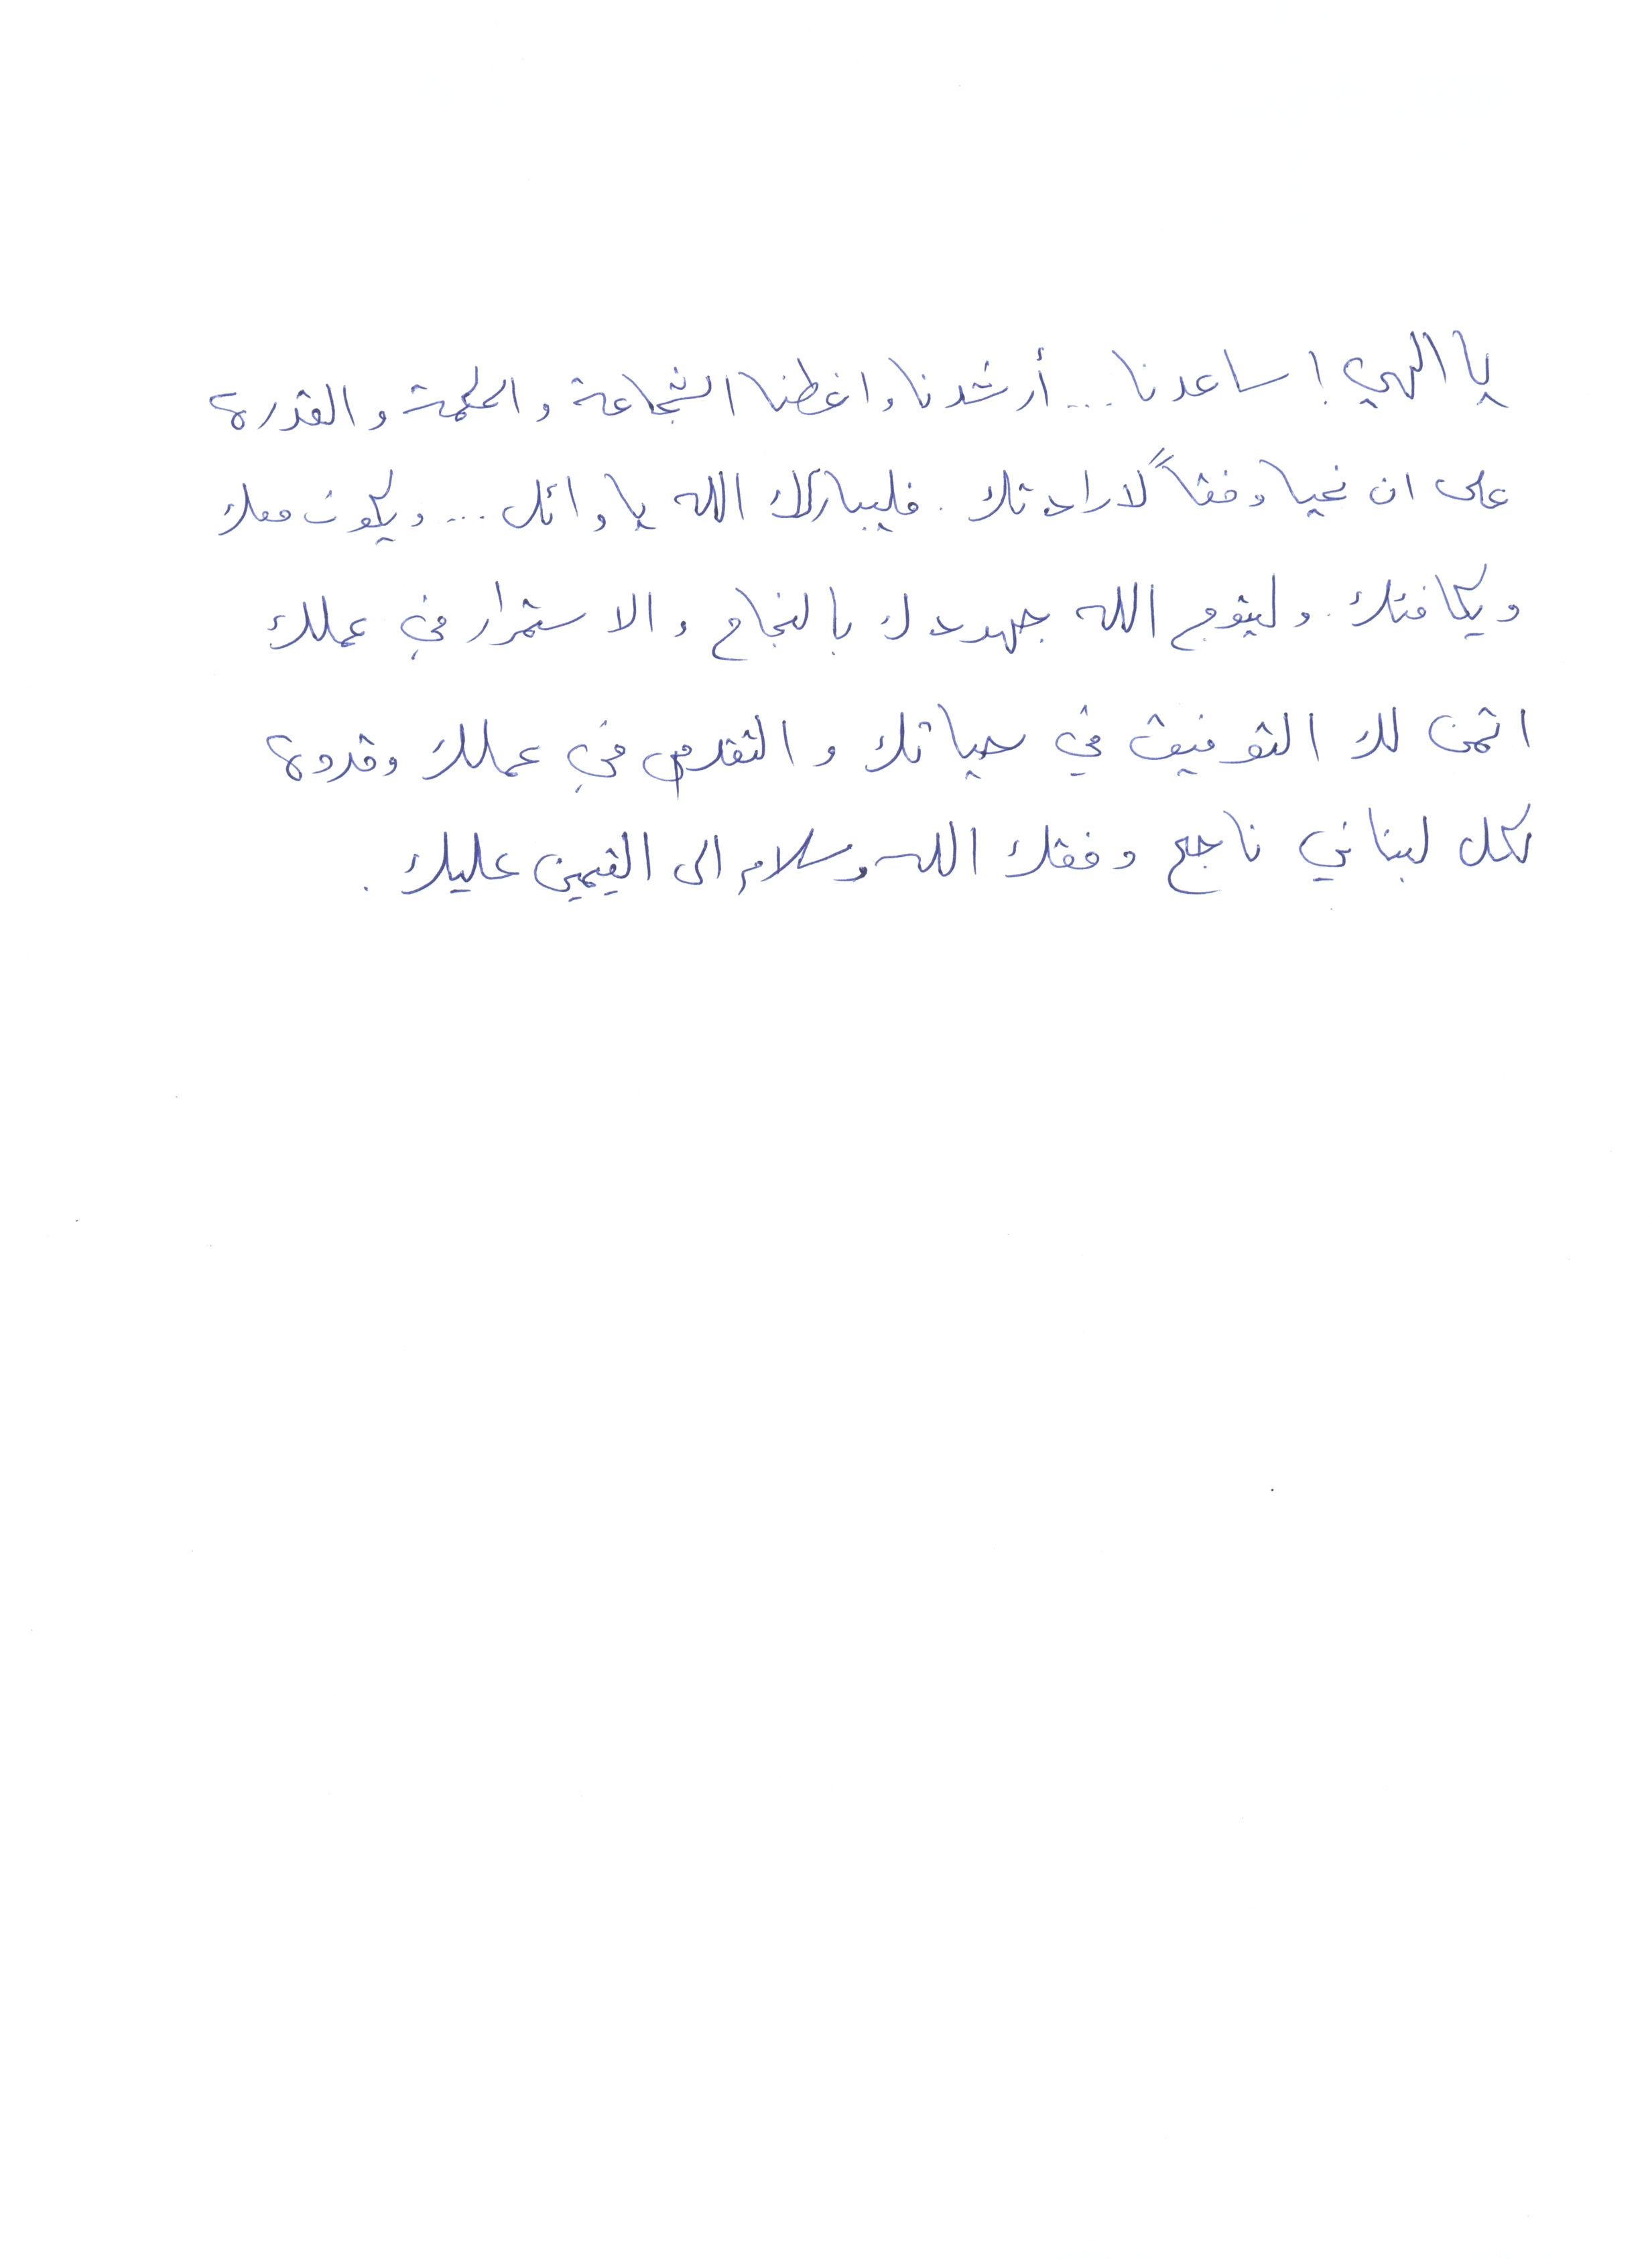 يا الهي ! ساعدنا ... أرشدنا واعطنا الشجاعة والحكمة والقدرة
على ان نحيا وفقاً لارادتك . فليباركك الله يا وائل ... ويكون معك
ويكافئك . وليتوج الله جهودك بالنجاح والاستمرار في عملك
اتمنى لك التوفيق في حياتك والتقدم في عملك وقدوة
لكل لبناني ناجح وفقك الله وسلام الى القيمين عليك .